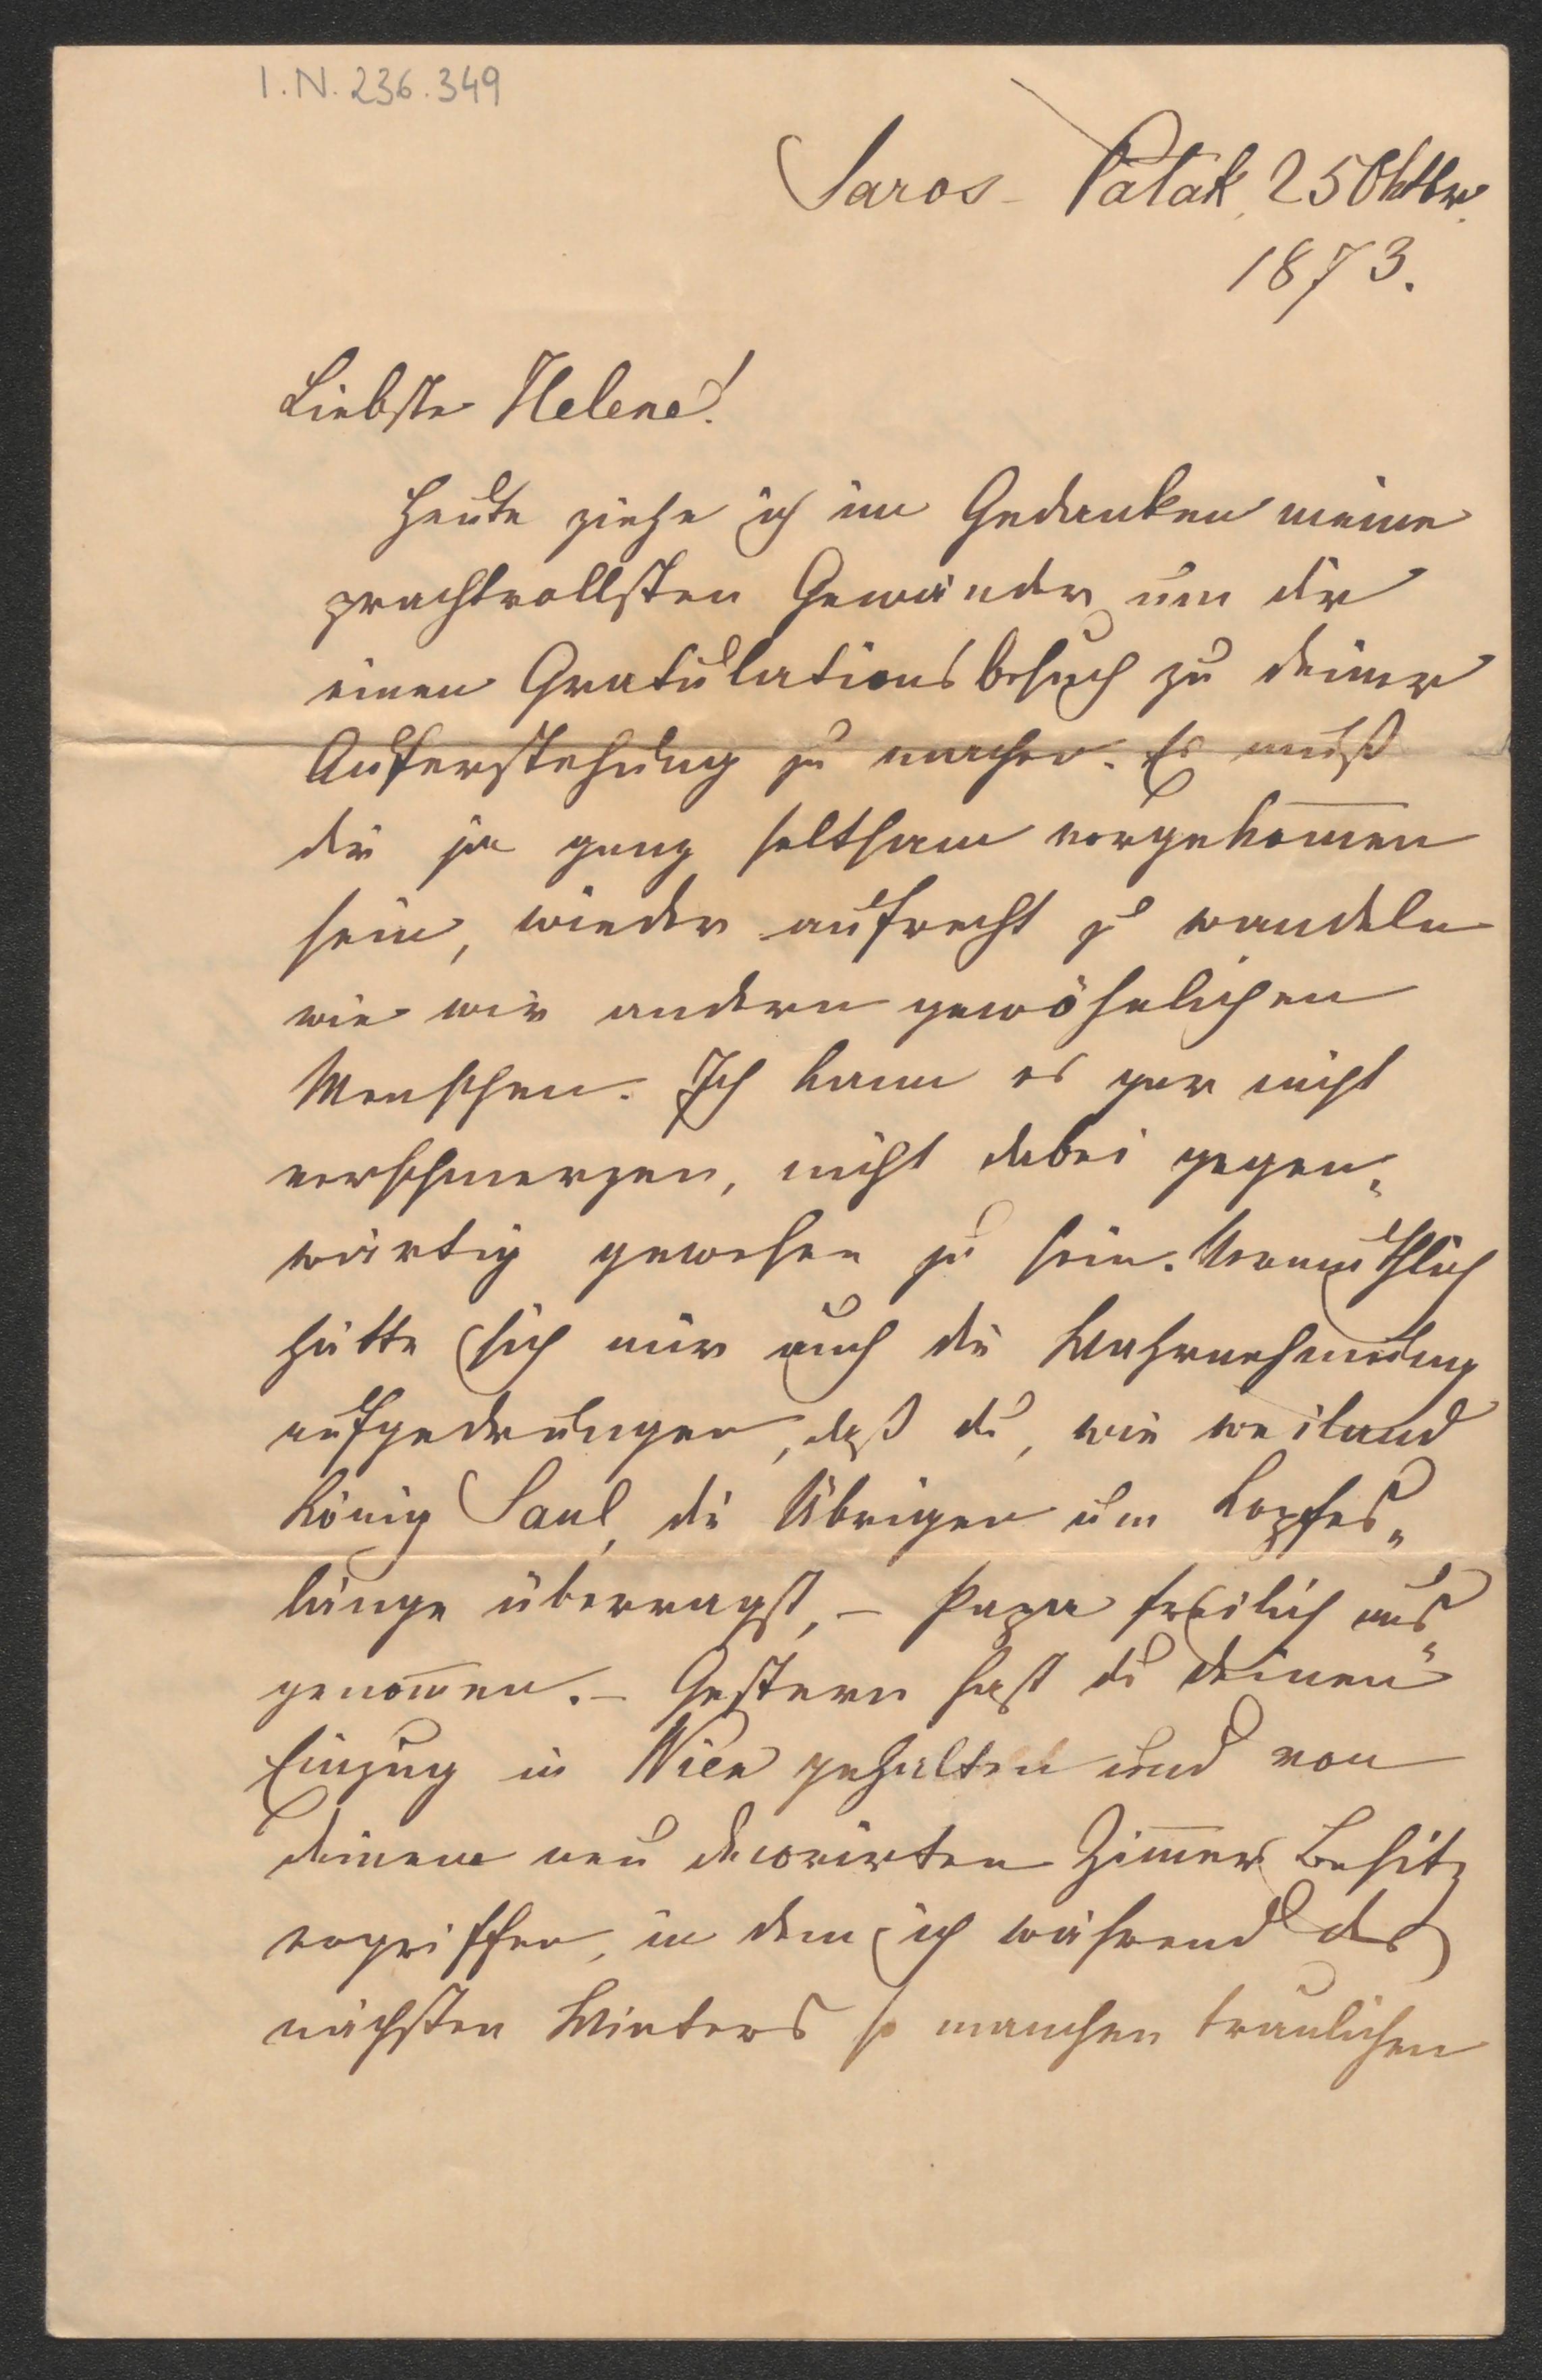 I.N. 236.349
Saros-Patak, 25 Oktbr.
1873.
Liebste Helene!
Heute ziehe ich im Gedanken meine
prachtvollsten Gewänder um dir
einen Gratulationsbesuch zu deiner
Auferstehung zu machen. Es muß
dir ja ganz seltsam vorgekom̅en
sein, wieder aufrecht zu wandeln
wie wir andern gewöhnlichen
Menschen. Ich kann es gar nicht
verschmerzen, nicht dabei gegen„
wärtig gewesen zu sein. Vermuthlich
hätte sich mir auch die Wahrnehmung
aufgedrungen, daß du, wie weiland
König Saul, die Übrigen um Kopfes„
länge überragst, – Papa freilich aus„
genom̅en. – Gestern hast du deinen
Einzug in Wien gehalten und von
deinem neu decorirten Zim̅er Besitz
ergriffen, in dem ich während des
nächsten Winters so manchen traulichen